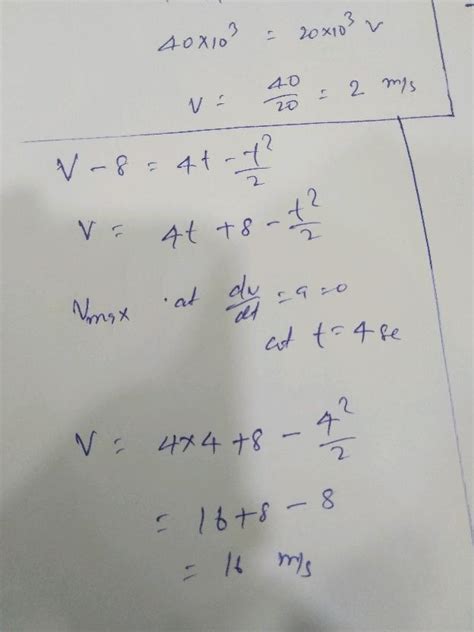 40×10³ = 20×10³ V
V = 40/20 = 2 m/s
V - 8 = 4t - t²/2
V = 4t + 8 - t²/2
Vmax at dv/dt = a = 0
at t = 4 se
V = 4×4 + 8 - 4²/2
= 16 + 8 - 8
= 16 m/s